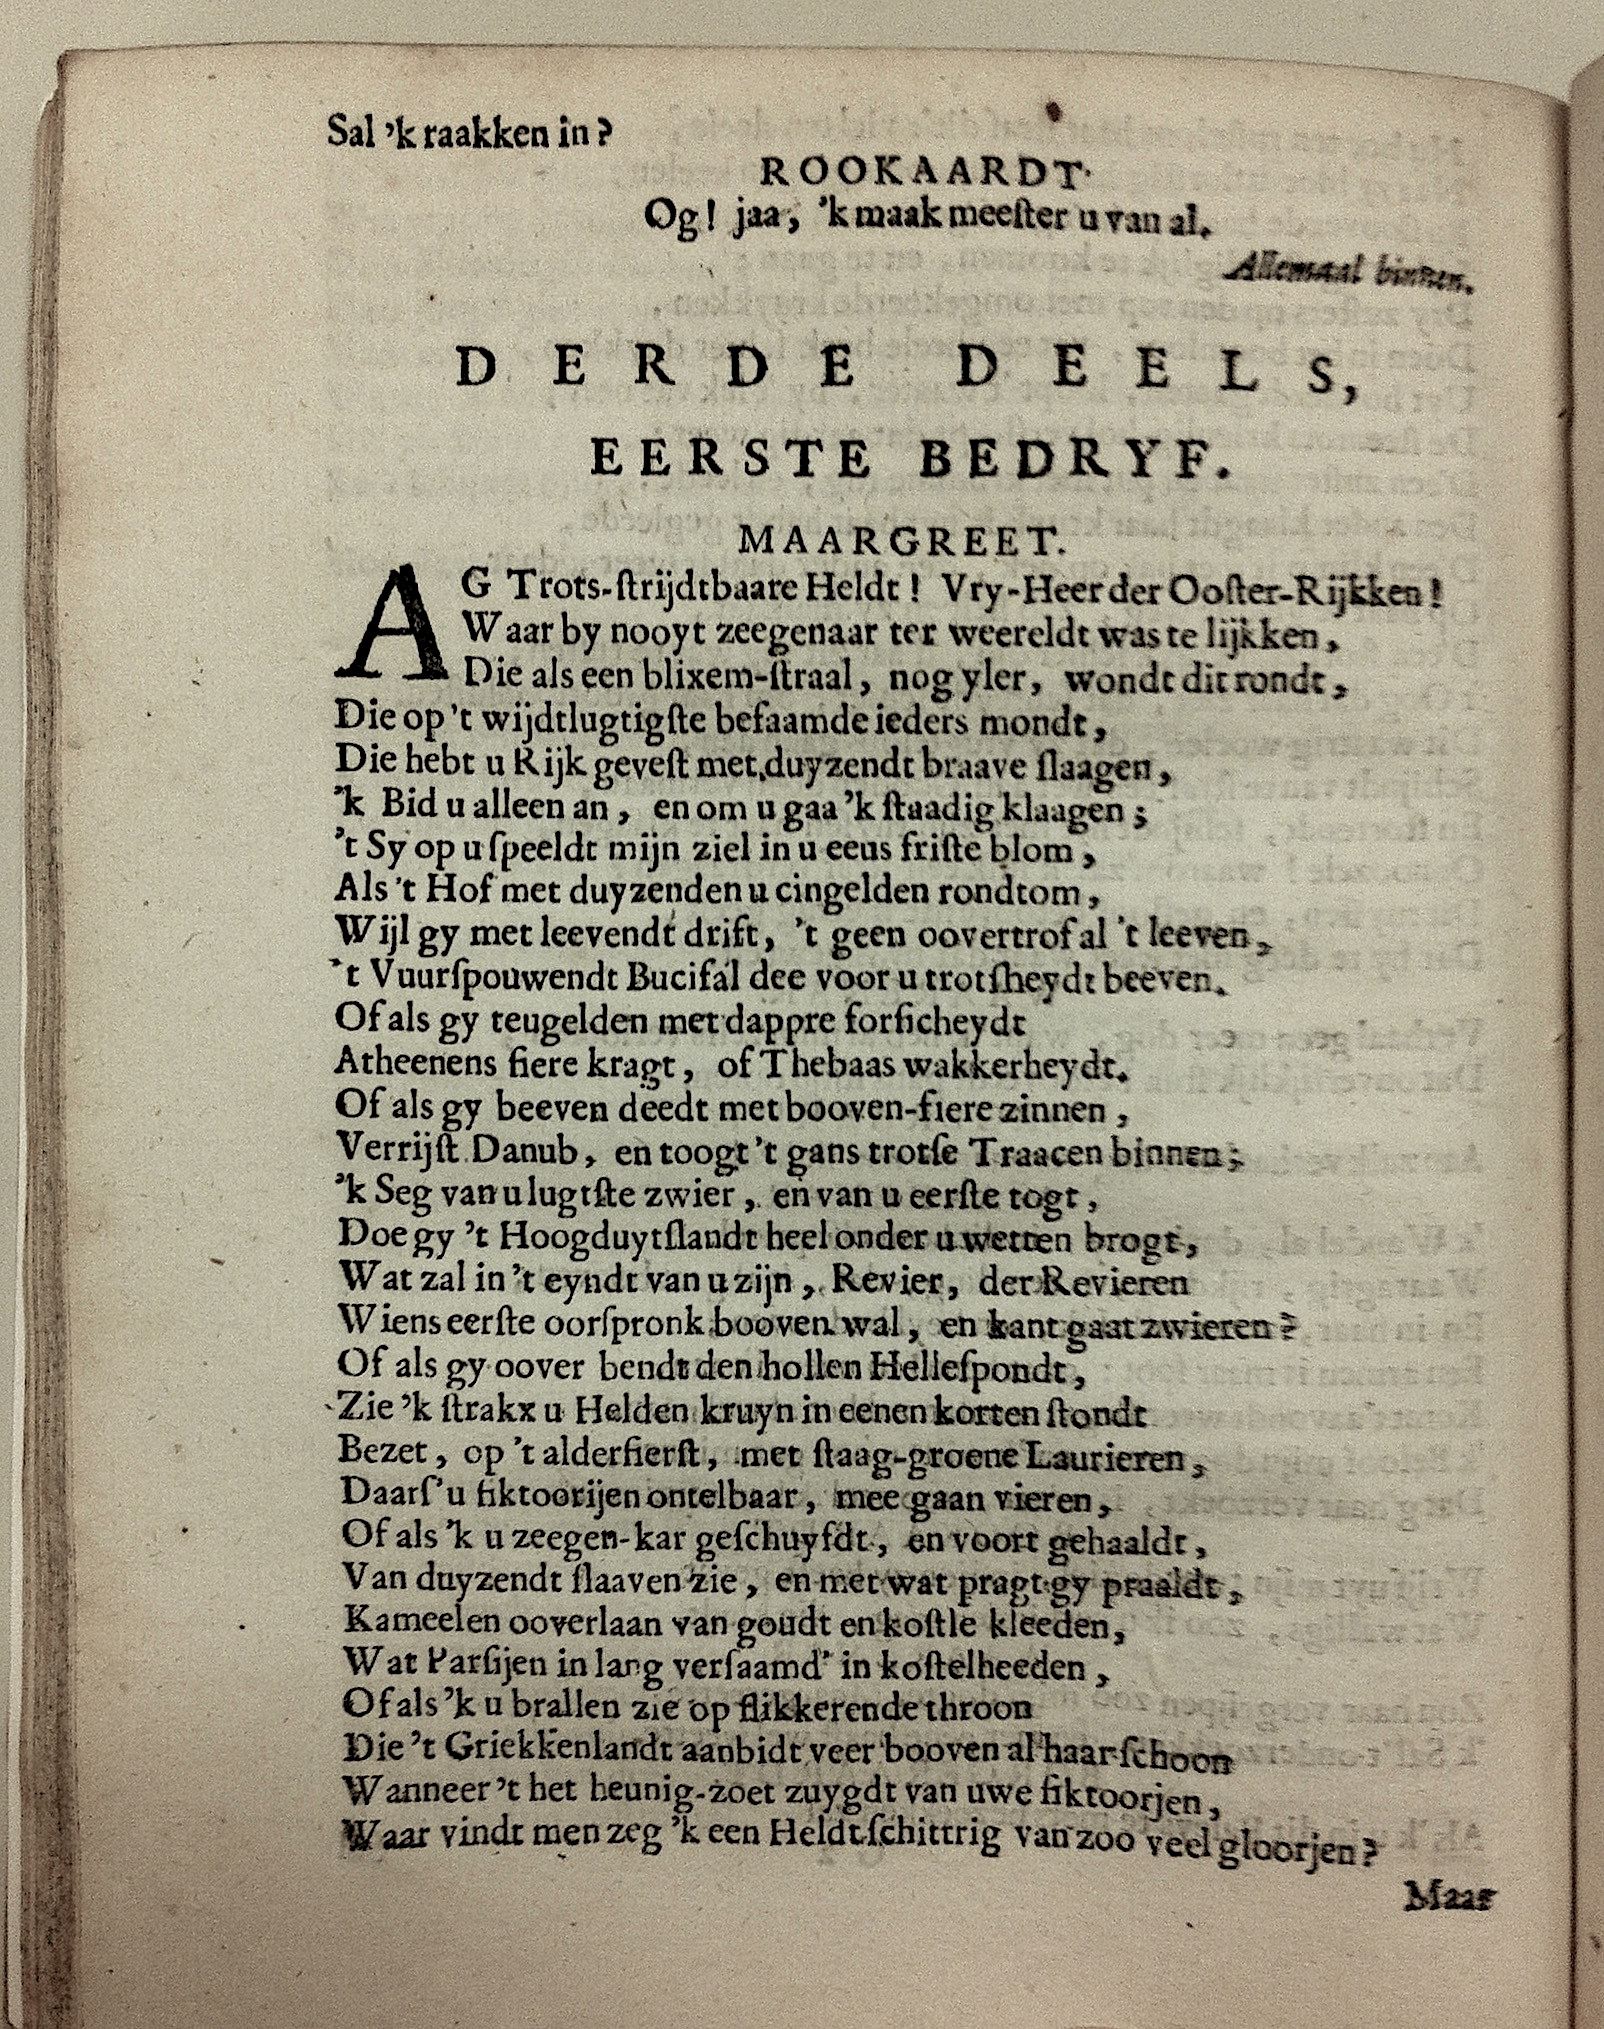 Sal 'k raakken in?
ROOKAARDT.
Og! jaa, 'k maak meeſter u van al.
Allemaal binnen.
DERDE DEELS,
EERSTE BEDRYF.
MAARGREET.
AG Trots-ſtrijdtbaare Heldt! Vry-Heer der Ooſter-Rijkken!
Waar by nooyt zeegenaar ter weereldt was te lijkken,
Die als een blixem-ſtraal, nog yler, wondt dit rondt,
Die op 't wijdtlugtigſte befaamde ieders mondt,
Die hebt u Rijk geveſt met duyzendt braave ſlaagen,
'k Bid u alleen an, en om u gaa 'k ſtaadig klaagen;
't Sy op u ſpeeldt mijn ziel in u eeus friſte blom,
Als 't Hof met duyzenden u cingelden rondtom,
Wijl gy met leevendt drift, 't geen oovertrof al 't leeven,
't Vuurſpouwendt Bucifal dee voor u trotſheydt beeven.
Of als gy teugelden met dappre forſicheydt
Atheenens fiere kragt, of Thebaas wakkerheydt.
Of als gy beeven deedt met booven-fiere zinnen,
Verrijſt Danub, en toogt 't gans trotſe Traacen binnen;
'k Seg van u lugtſte zwier, en van u eerſte togt,
Doe gy 't Hoogduytſlandt heel onder u wetten brogt,
Wat zal in 't eyndt van u zijn, Revier, der Revieren
Wiens eerſte oorſpronk booven wal, en kant gaat zwieren?
Of als gy oover bendt den hollen Helleſpondt,
Zie 'k ſtrakx u Helden kruyn in eenen korten ſtondt
Bezet, op 't alderfierſt, met ſtaag-groene Laurieren,
Daarſ' u fiktoorijen ontelbaar, mee gaan vieren,
Of als 'k u zeegen-kar geſchuyfdt, en voort gehaaldt,
Van duyzendt ſlaaven zie, en met wat pragt gy praaldt,
Kameelen ooverlaan van goudt en koſtle kleeden,
Wat Parſijen in lang verſaamd' in koſtelheeden,
Of als 'k u brallen zie op flikkerende throon
Die 't Griekkenlandt aanbidt veer booven al haar ſchoon
Wanneer 't het heunig-zoet zuygdt van uwe fiktoorjen,
Waar vindt men zeg 'k een Heldt ſchittrig van zoo veel gloorjen?
Maar